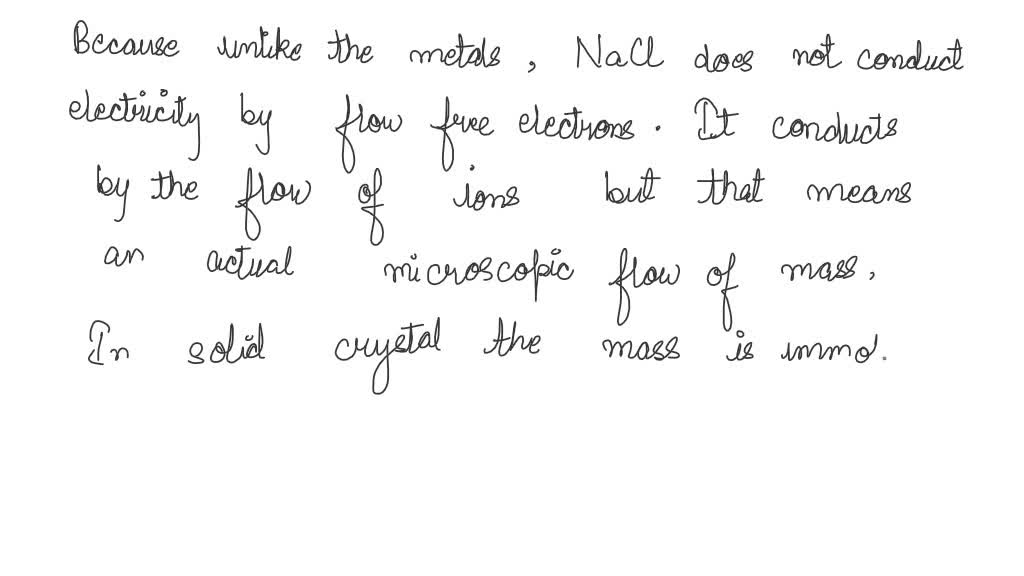 Because unlike the metals, NaCl does not conduct
electricity by flow free electrons. It conducts
by the flow of ions but that means
an actual microscopic flow of mass.
In solid crystal the mass is immo.